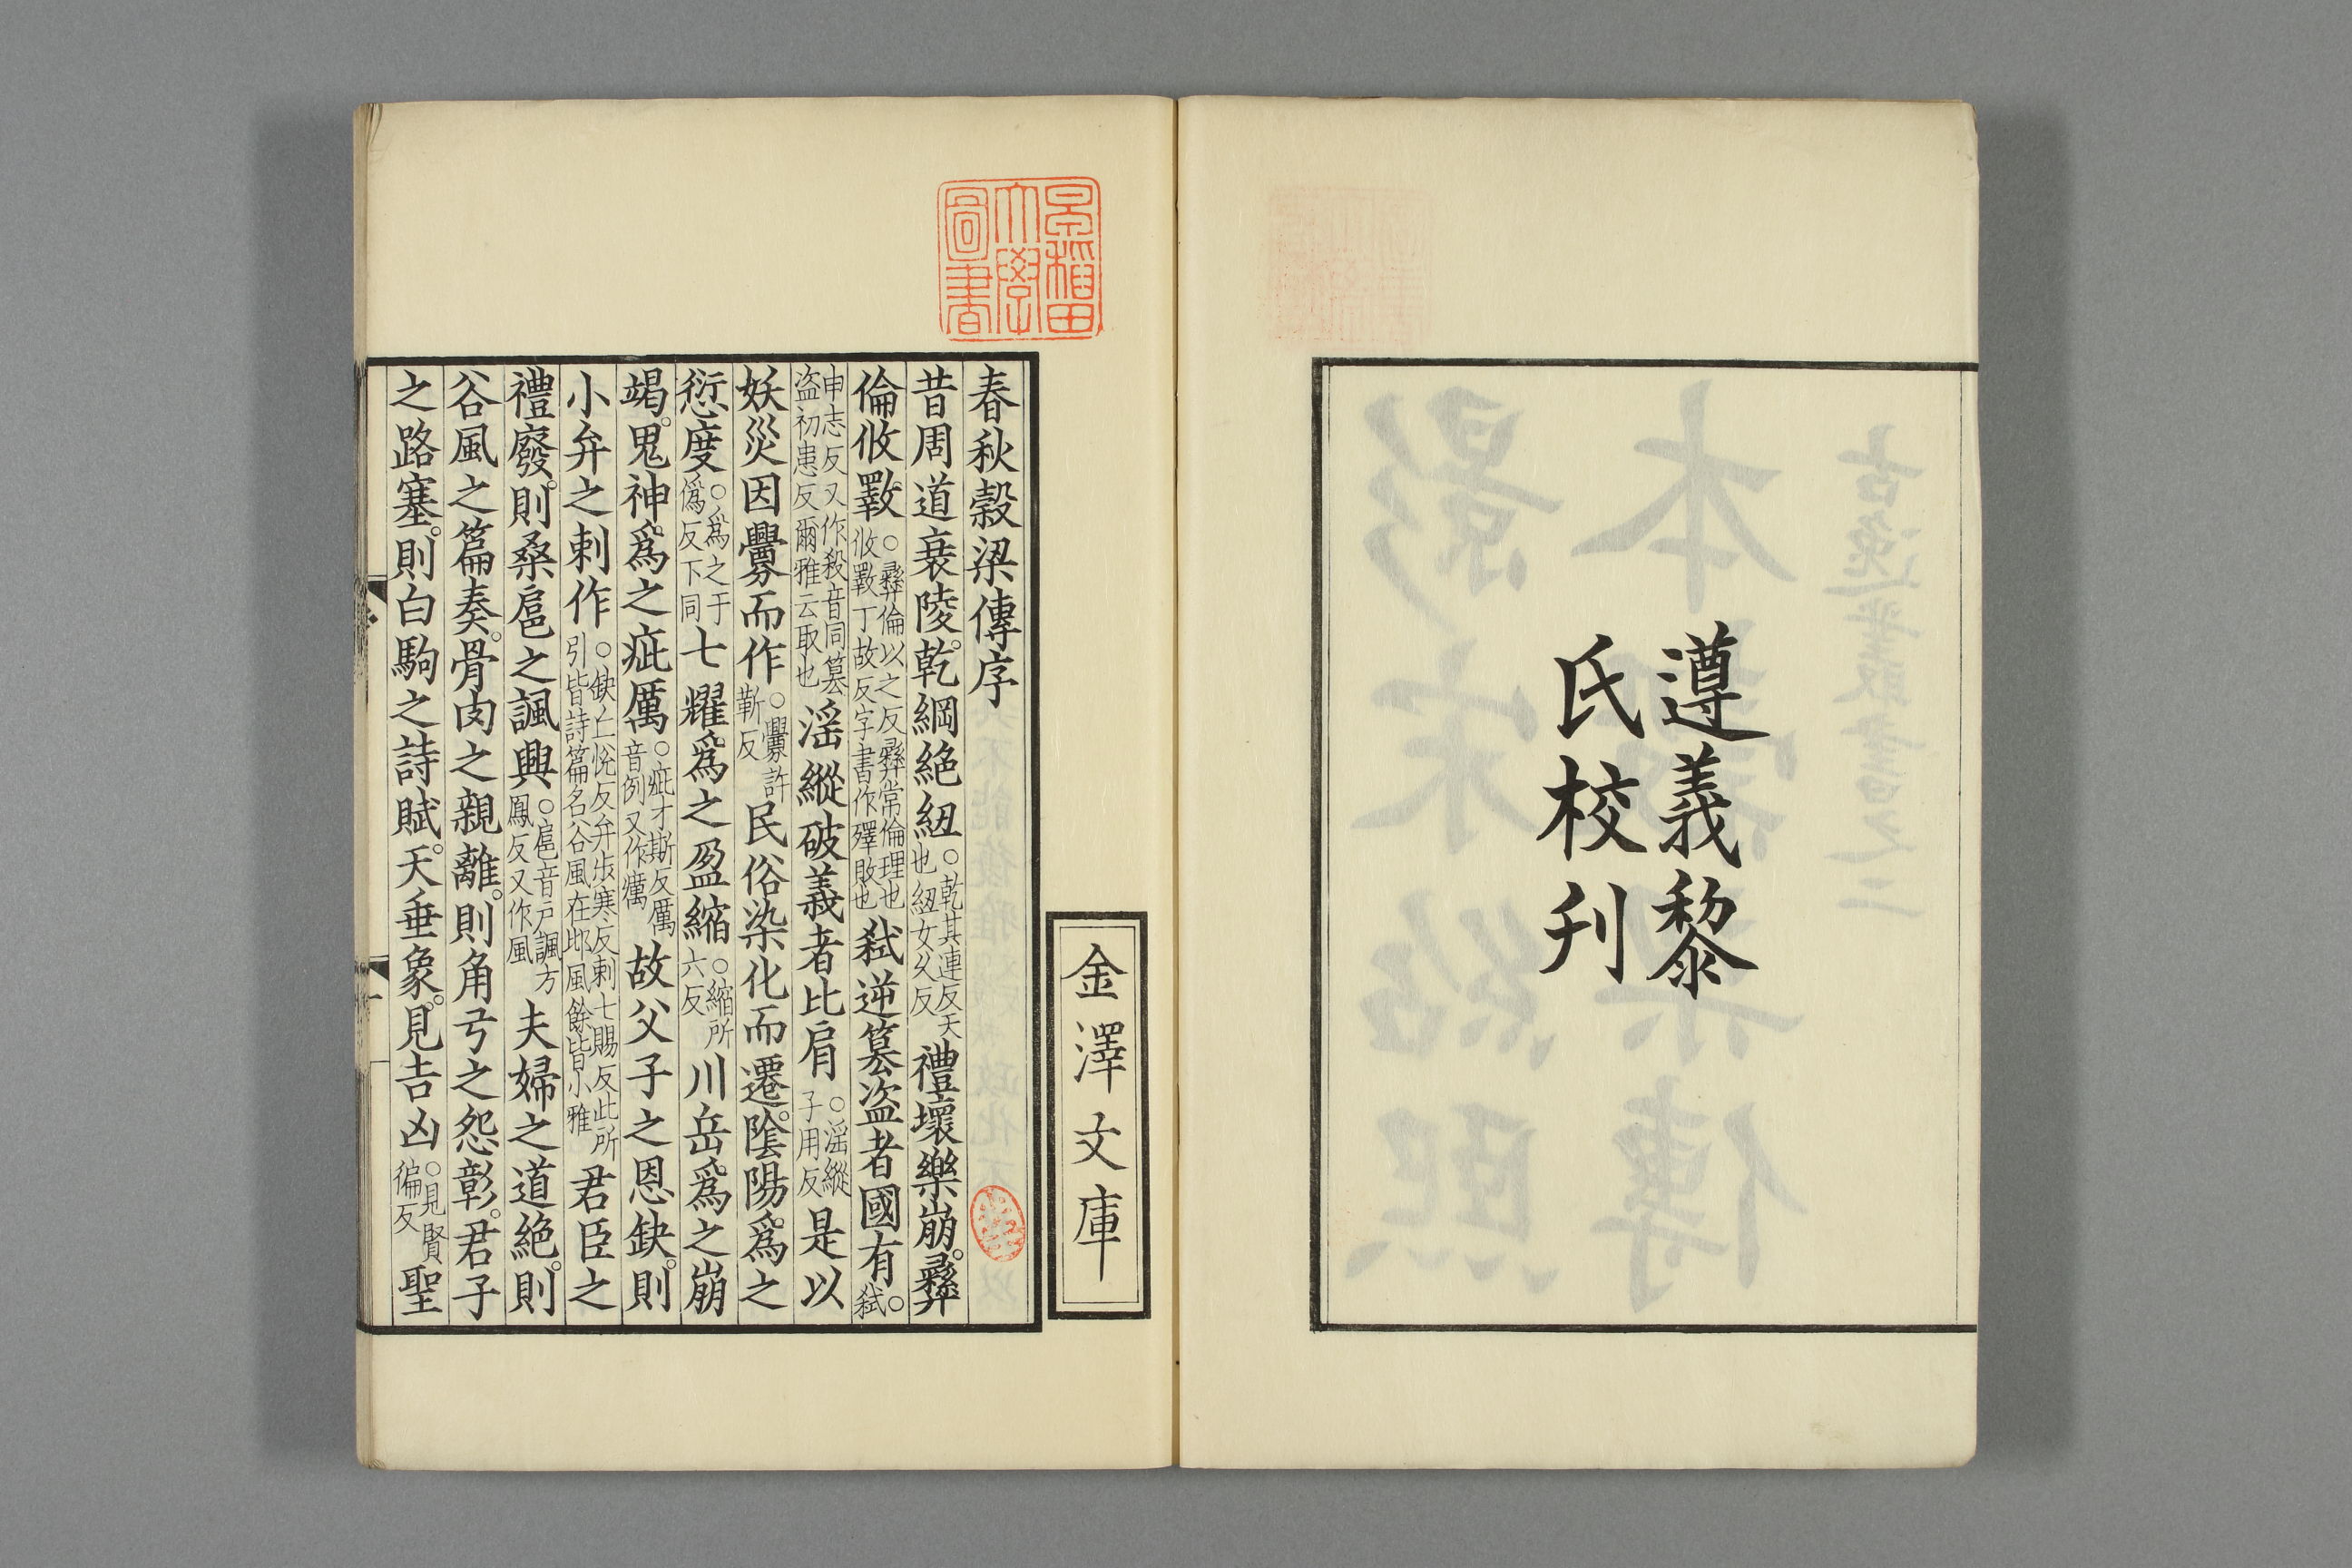 遵義黎
氏校刊
金澤文庫
早稻田
大學
圖書
春秋穀梁傳序
昔周道衰陵乾綱絶紐○乾其連反天也紐女久反禮壞樂崩彝
倫攸斁○彝倫以之反彝常倫理也攸斁丁故反字書作殬敗也弒逆篡盜者國有○弒
申志反又作殺音同篡盜初患反爾雅云取也滛縱破義者比肩○滛縱子用反是以
妖災因釁而作○釁許靳反民俗染化而遷隂陽爲之
愆度○爲之于僞反下同七耀爲之盈縮○縮所六反川岳爲之崩
竭鬼神爲之疵厲○疵才斯反厲音例又作癘故父子之恩缺則
小弁之刺作○缺丘悅反弁步寒反刺七賜反此所引皆詩篇名谷風在邶風餘皆小雅君臣之
禮廢則桑扈之諷興○扈音戶諷方鳳反又作風夫婦之道絶則
谷風之篇奏骨肉之親離則角弓之怨彰君子
之路塞則白駒之詩賦天垂象見吉凶○見賢徧反聖